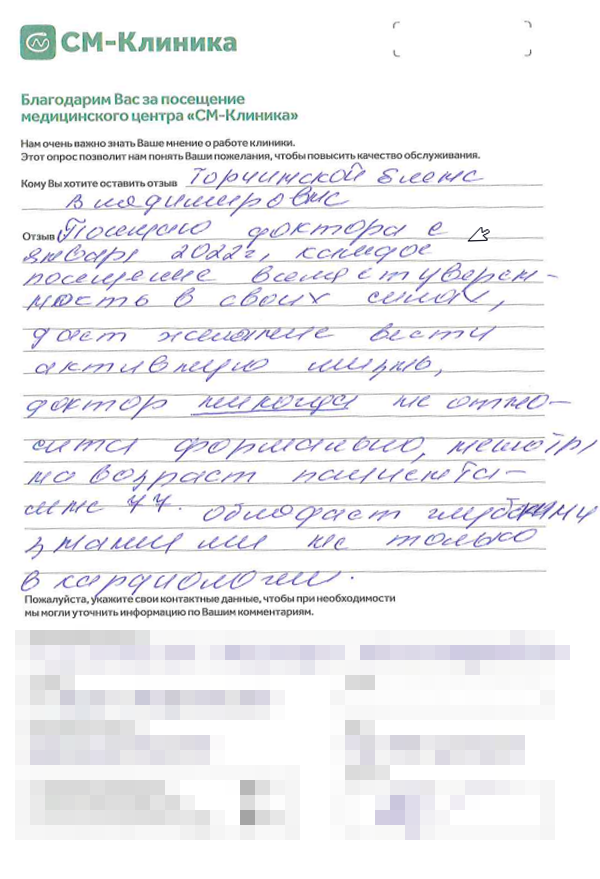 СМ-Клиника
Благодарим Вас за посещение
медицинского центра «СМ-Клиника»
Нам очень важно знать Ваше мнение о работе клиники.
Этот опрос позволит нам понять Ваши пожелания, чтобы повысить качество обслуживания.
Кому Вы хотите оставить отзыв Торчинской Елене
Владимировне
Отзыв Посещаю доктора с
января 2022г, каждое
посещение вселяет уверен-
ность в своих силах,
дает желание вести
активную жизнь,
доктор никогда не отно-
сится формально, несмотря
на возраст пациента-
мне 77. обладает глубокими
знаниями не только
в кардиологии.
Пожалуйста, укажите свои контактные данные, чтобы при необходимости
мы могли уточнить информацию по Вашим комментариям.